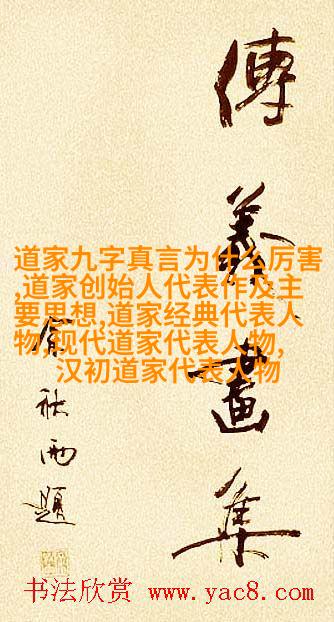 道家九字真言为什么厉害
,道家创始人代表作及主
要思想,道家经典代表人
物,现代道家代表人物,
汉初道家代表人物
畫集
題
书法欣赏 www.yac8.com